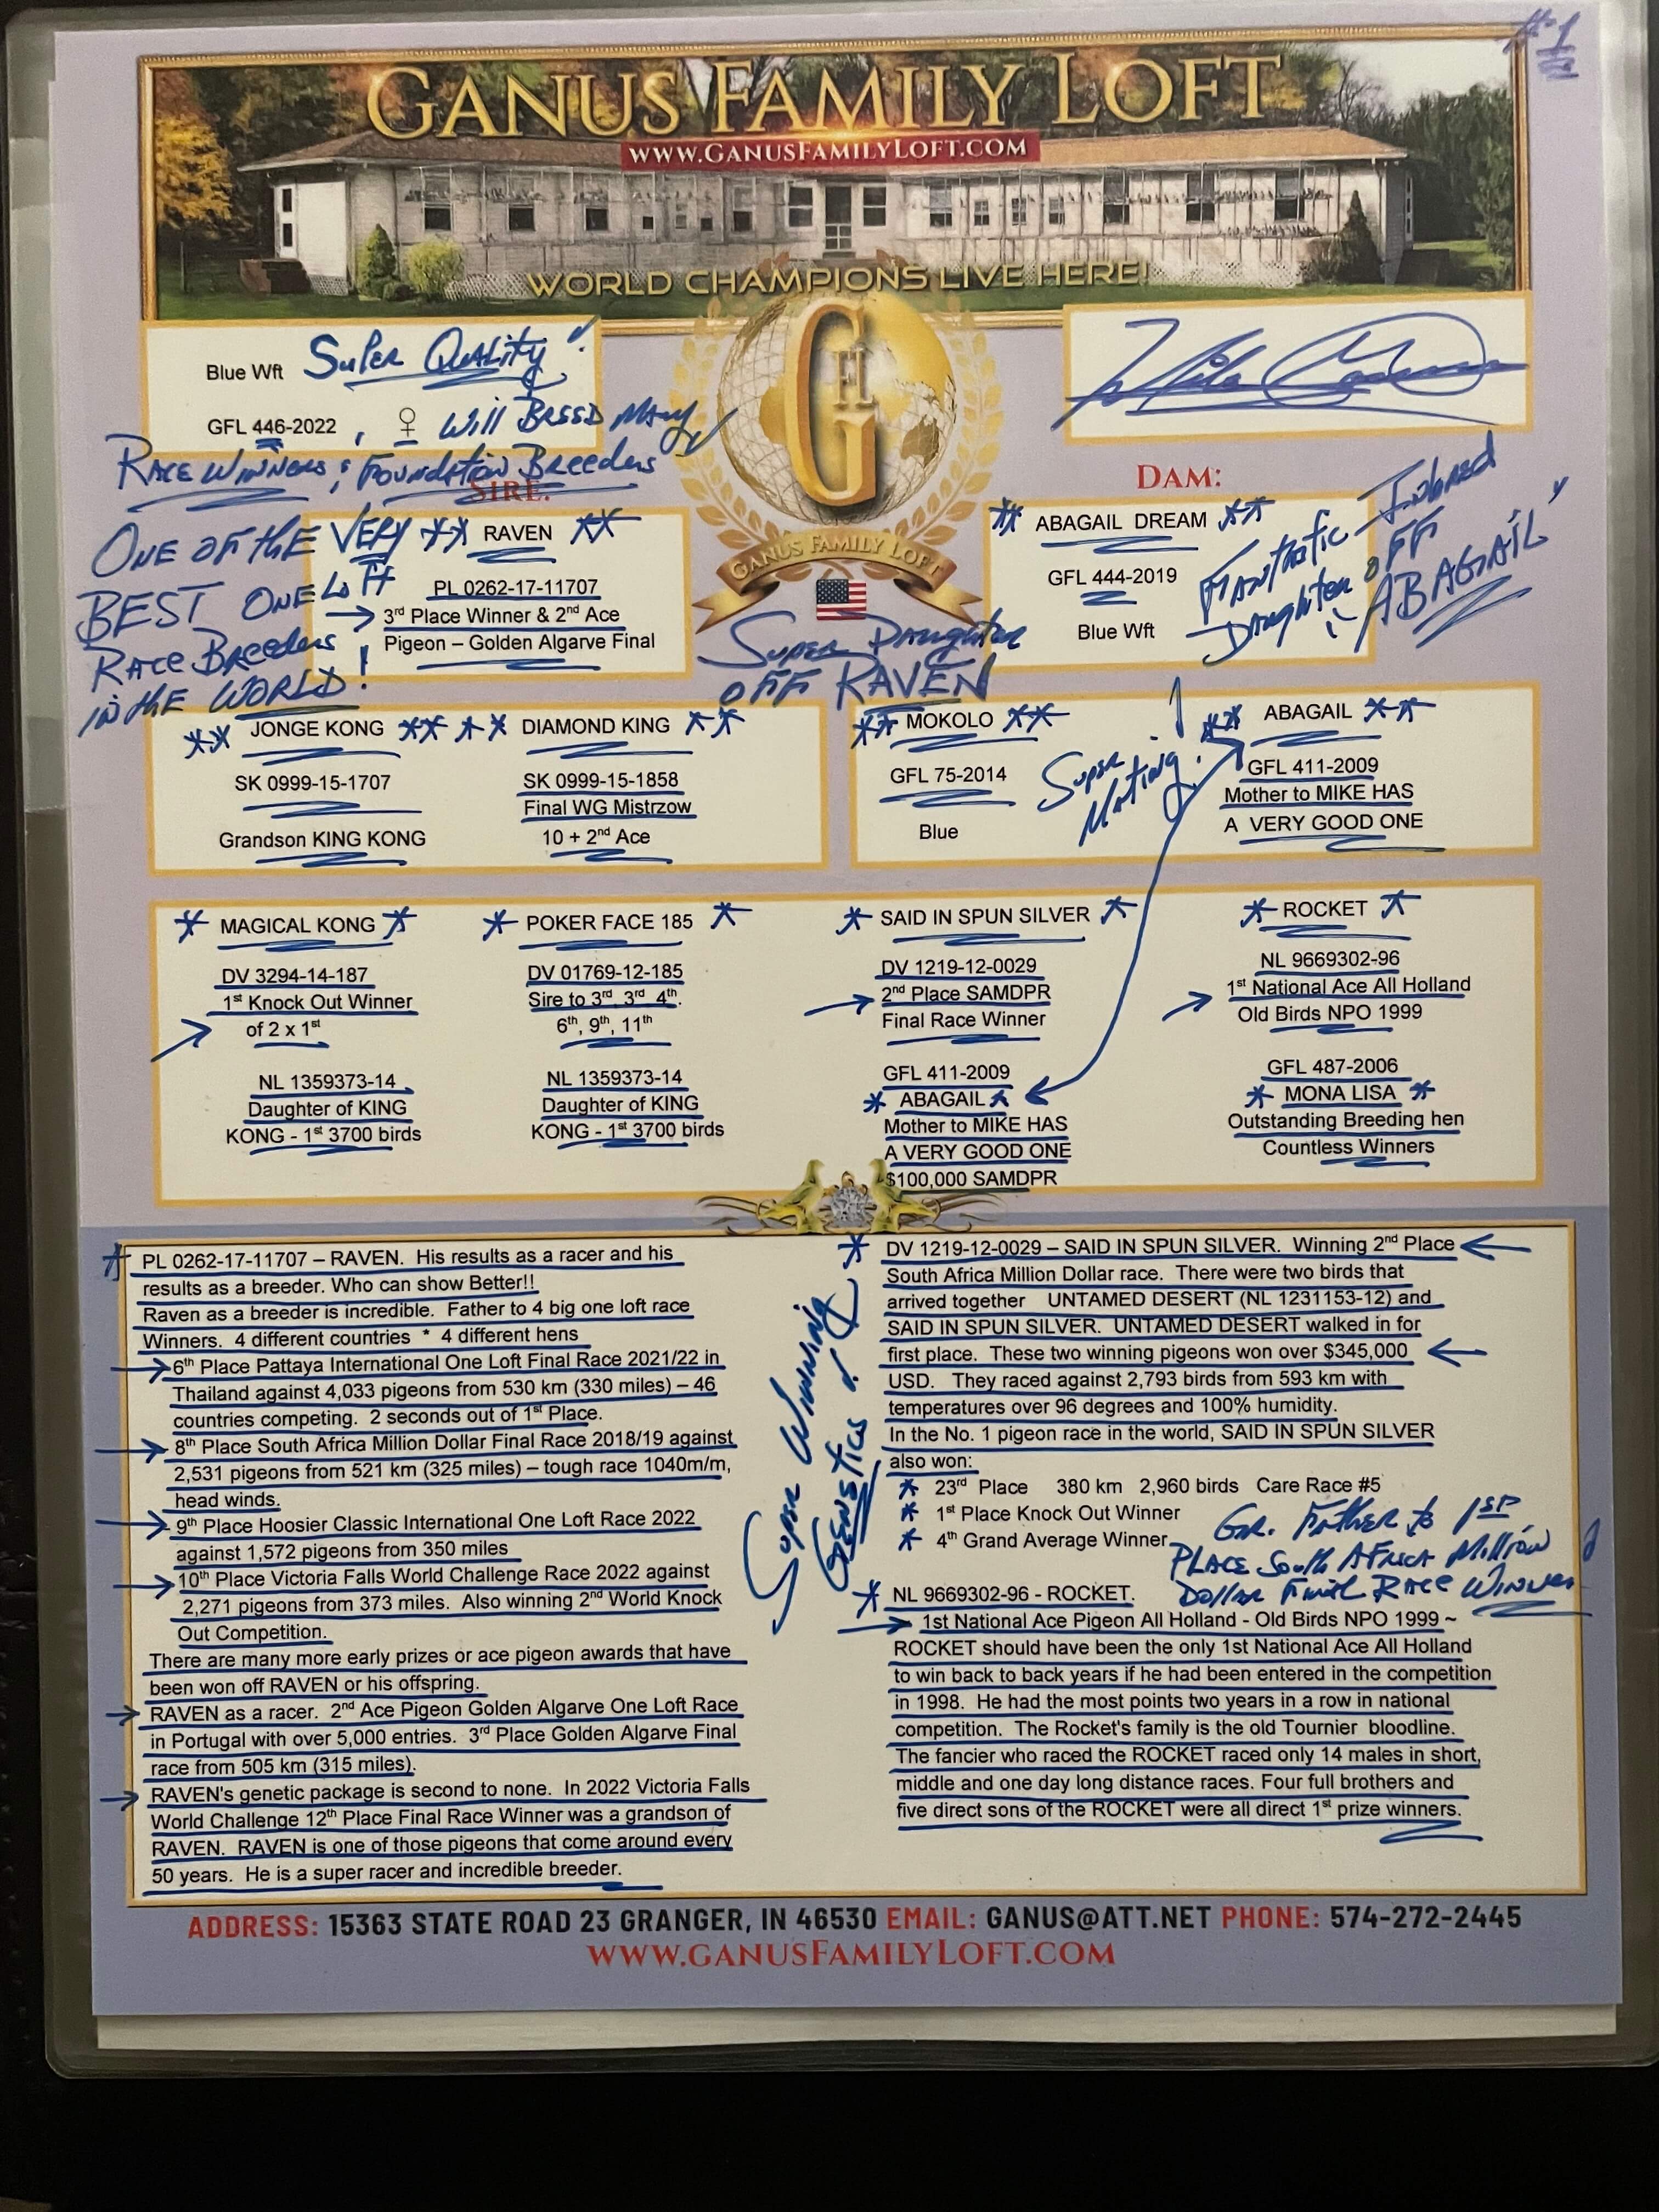 #1
GANUS FAMILY LOFT
WWW.GANUSFAMILYLOFT.COM
WORLD CHAMPIONS LIVE HERE!
G
H
Blue Wft Super Quality!
GFL 446-2022 , ♀ Will Breed Many
Race Winners & Foundation Breeders
SIRE:
One of the VERY
BEST One Loft
Race Breeders
in the WORLD!
** RAVEN **
PL 0262-17-11707
3rd Place Winner & 2nd Ace
Pigeon – Golden Algarve Final
GANUS FAMILY LOFT
Super Daughter
OFF RAVEN
DAM:
** ABAGAIL DREAM **
GFL 444-2019
Blue Wft
Fantastic Inbred
Daughter OFF
"ABAGAIL"
** JONGE KONG **
SK 0999-15-1707
Grandson KING KONG
** DIAMOND KING **
SK 0999-15-1858
Final WG Mistrzow
10 + 2nd Ace
** MOKOLO **
GFL 75-2014
Blue
Super
Mating!
** ABAGAIL **
GFL 411-2009
Mother to MIKE HAS
A VERY GOOD ONE
* MAGICAL KONG *
DV 3294-14-187
1st Knock Out Winner
of 2 x 1st
NL 1359373-14
Daughter of KING
KONG - 1st 3700 birds
* POKER FACE 185 *
DV 01769-12-185
Sire to 3rd, 3rd, 4th,
6th, 9th, 11th
NL 1359373-14
Daughter of KING
KONG - 1st 3700 birds
* SAID IN SPUN SILVER *
DV 1219-12-0029
2nd Place SAMDPR
Final Race Winner
GFL 411-2009
* ABAGAIL *
Mother to MIKE HAS
A VERY GOOD ONE
$100,000 SAMDPR
* ROCKET *
NL 9669302-96
1st National Ace All Holland
Old Birds NPO 1999
GFL 487-2006
* MONA LISA *
Outstanding Breeding hen
Countless Winners
* PL 0262-17-11707 – RAVEN. His results as a racer and his
results as a breeder. Who can show Better!!
Raven as a breeder is incredible. Father to 4 big one loft race
Winners. 4 different countries * 4 different hens
6th Place Pattaya International One Loft Final Race 2021/22 in
Thailand against 4,033 pigeons from 530 km (330 miles) – 46
countries competing. 2 seconds out of 1st Place.
8th Place South Africa Million Dollar Final Race 2018/19 against
2,531 pigeons from 521 km (325 miles) – tough race 1040m/m,
head winds.
9th Place Hoosier Classic International One Loft Race 2022
against 1,572 pigeons from 350 miles
10th Place Victoria Falls World Challenge Race 2022 against
2,271 pigeons from 373 miles. Also winning 2nd World Knock
Out Competition.
There are many more early prizes or ace pigeon awards that have
been won off RAVEN or his offspring.
RAVEN as a racer. 2nd Ace Pigeon Golden Algarve One Loft Race
in Portugal with over 5,000 entries. 3rd Place Golden Algarve Final
race from 505 km (315 miles).
RAVEN's genetic package is second to none. In 2022 Victoria Falls
World Challenge 12th Place Final Race Winner was a grandson of
RAVEN. RAVEN is one of those pigeons that come around every
50 years. He is a super racer and incredible breeder.
Super Winning
Genetics!
* DV 1219-12-0029 – SAID IN SPUN SILVER. Winning 2nd Place
South Africa Million Dollar race. There were two birds that
arrived together UNTAMED DESERT (NL 1231153-12) and
SAID IN SPUN SILVER. UNTAMED DESERT walked in for
first place. These two winning pigeons won over $345,000
USD. They raced against 2,793 birds from 593 km with
temperatures over 96 degrees and 100% humidity.
In the No. 1 pigeon race in the world, SAID IN SPUN SILVER
also won:
* 23rd Place 380 km 2,960 birds Care Race #5
* 1st Place Knock Out Winner
* 4th Grand Average Winner
Gr. Father to 1st
Place South Africa Million
Dollar Final Race Winner
* NL 9669302-96 - ROCKET.
1st National Ace Pigeon All Holland - Old Birds NPO 1999 ~
ROCKET should have been the only 1st National Ace All Holland
to win back to back years if he had been entered in the competition
in 1998. He had the most points two years in a row in national
competition. The Rocket's family is the old Tournier bloodline.
The fancier who raced the ROCKET raced only 14 males in short,
middle and one day long distance races. Four full brothers and
five direct sons of the ROCKET were all direct 1st prize winners.
ADDRESS: 15363 STATE ROAD 23 GRANGER, IN 46530 EMAIL: GANUS@ATT.NET PHONE: 574-272-2445
WWW.GANUSFAMILYLOFT.COM